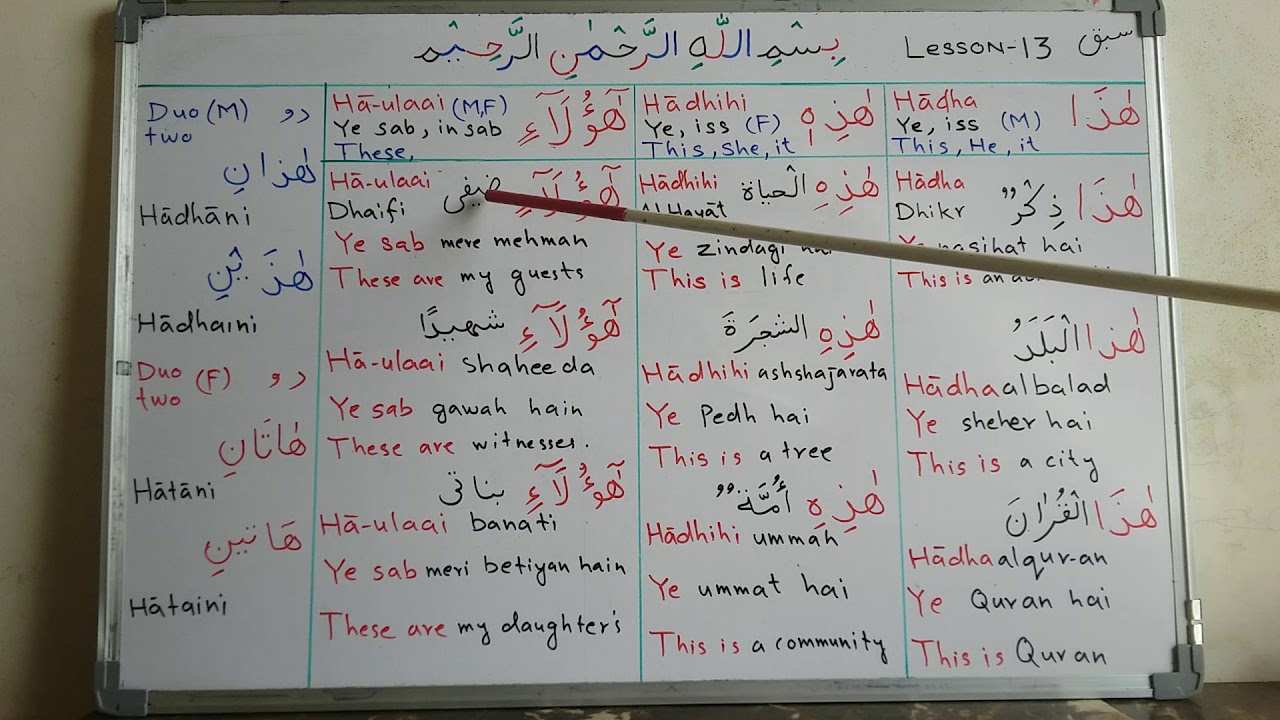 بِسْمِ اللّٰهِ الرَّحْمٰنِ الرَّحِيْمِ
Lesson-13 سبق
Hādha هٰذَا
Ye, iss (M)
This, He, it
Hādha
Dhikr هٰذَا ذِكْرٌ
nasihat hai
This is an
هٰذا الْبَلَدَ
Hādha albalad
Ye sheher hai
This is a city
هٰذَا الْقُرْاٰنَ
Hādha alqur-an
Ye Quran hai
This is Quran
Hādhihi هٰذِهٖ
Ye, iss (F)
This, She, it
Hādhihi هٰذِهِ الْحياة
Al Hayāt
Ye zindagi hai
This is life
هٰذِهِ الشجَرَةَ
Hādhihi ashshajarata
Ye Pedh hai
This is a tree
هٰذِهِ أُمَّةٌ
Hādhihi ummah
Ye ummat hai
This is a community
Hā-ulaai (M,F) هٰٓؤُلَآءِ
Ye sab, in sab
These,
Hā-ulaai هٰٓؤُلَآءِ ضيفى
Dhaifi
Ye sab mere mehman
These are my guests
هٰٓؤُلَآءِ شهيدًا
Hā-ulaai shaheeda
Ye sab gawah hain
These are witnesses.
هٰٓؤُلَآءِ بناتى
Hā-ulaai banati
Ye sab meri betiyan hain
These are my daughter's
Duo (M) دو
two
هٰذانِ
Hādhāni
هٰذَيْنِ
Hādhaini
Duo (F) دو
two
هٰاتَانِ
Hātāni
هَاتينِ
Hātaini